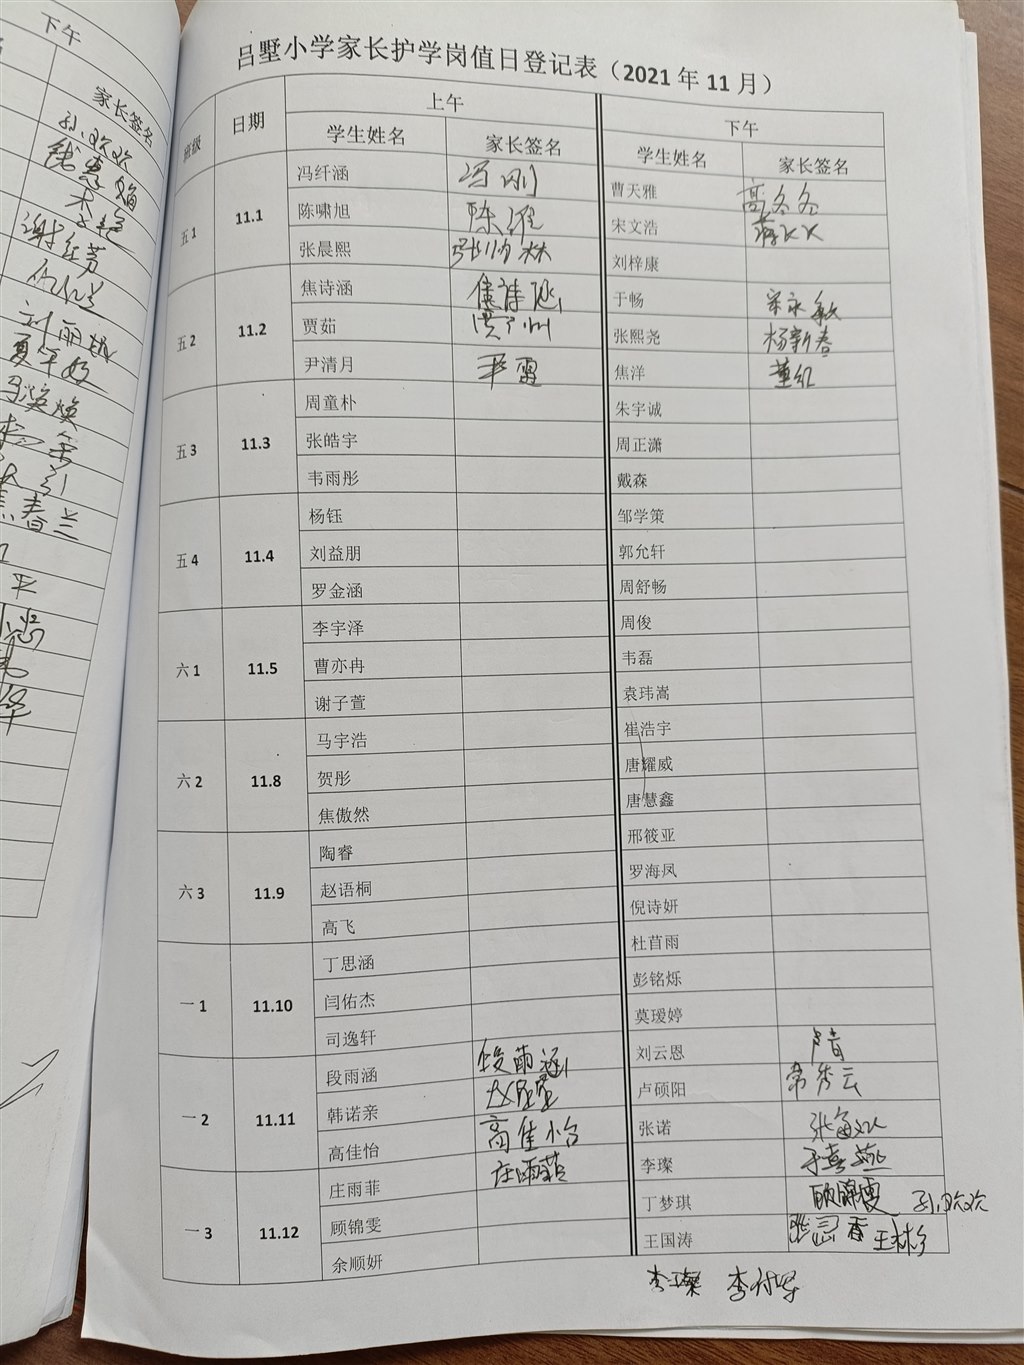 下午
家长签名
孙欢欢
谢红芳
刘丽娥
春兰
平
吕墅小学家长护学岗值日登记表（2021年11月）
班级 日期 上午 下午
学生姓名 家长签名 学生姓名 家长签名
五1 11.1 冯纤涵 冯刚 曹天雅 高冬冬
陈啸旭 宋文浩
张晨熙 刘梓康
五2 11.2 焦诗涵 焦诗涵 于畅 宋永敏
贾茹 张熙尧 杨新春
尹清月 尹雷 焦洋 董红
五3 11.3 周童朴 朱宇诚
张皓宇 周正潇
韦雨彤 戴森
五4 11.4 杨钰 邹学策
刘益朋 郭允轩
罗金涵 周舒畅
六1 11.5 李宇泽 周俊
曹亦冉 韦磊
谢子萱 袁玮嵩
六2 11.8 马宇浩 崔浩宇
贺彤 唐耀威
焦傲然 唐慧鑫
六3 11.9 陶睿 邢筱亚
赵语桐 罗海凤
高飞 倪诗妍
一1 11.10 丁思涵 杜苜雨
闫佑杰 彭铭烁
司逸轩 莫瑷婷
一2 11.11 段雨涵 段雨涵 刘云恩
韩诺亲 卢硕阳 常秀云
高佳怡 高佳怡 张诺
一3 11.12 庄雨菲 庄雨菲 李璨 于喜燕
顾锦雯 丁梦琪 顾锦雯 孙欢欢
余顺妍 王国涛 张思香 王彬
李璨